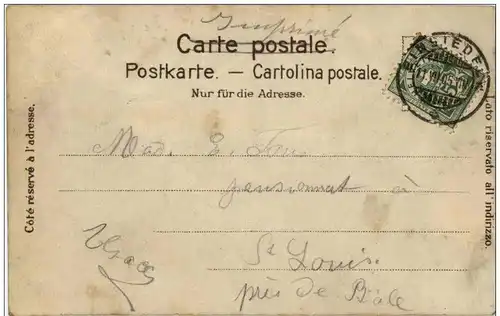 Imprimé
Carte postale.
Postkarte. — Cartolina postale.
Nur für die Adresse.
EINSIEDELN
Côté réservé à l'adresse.
Lato riservato all'indirizzo.
Mad. E.
pensionnat à
St Louis
près de Bâle
Alsace